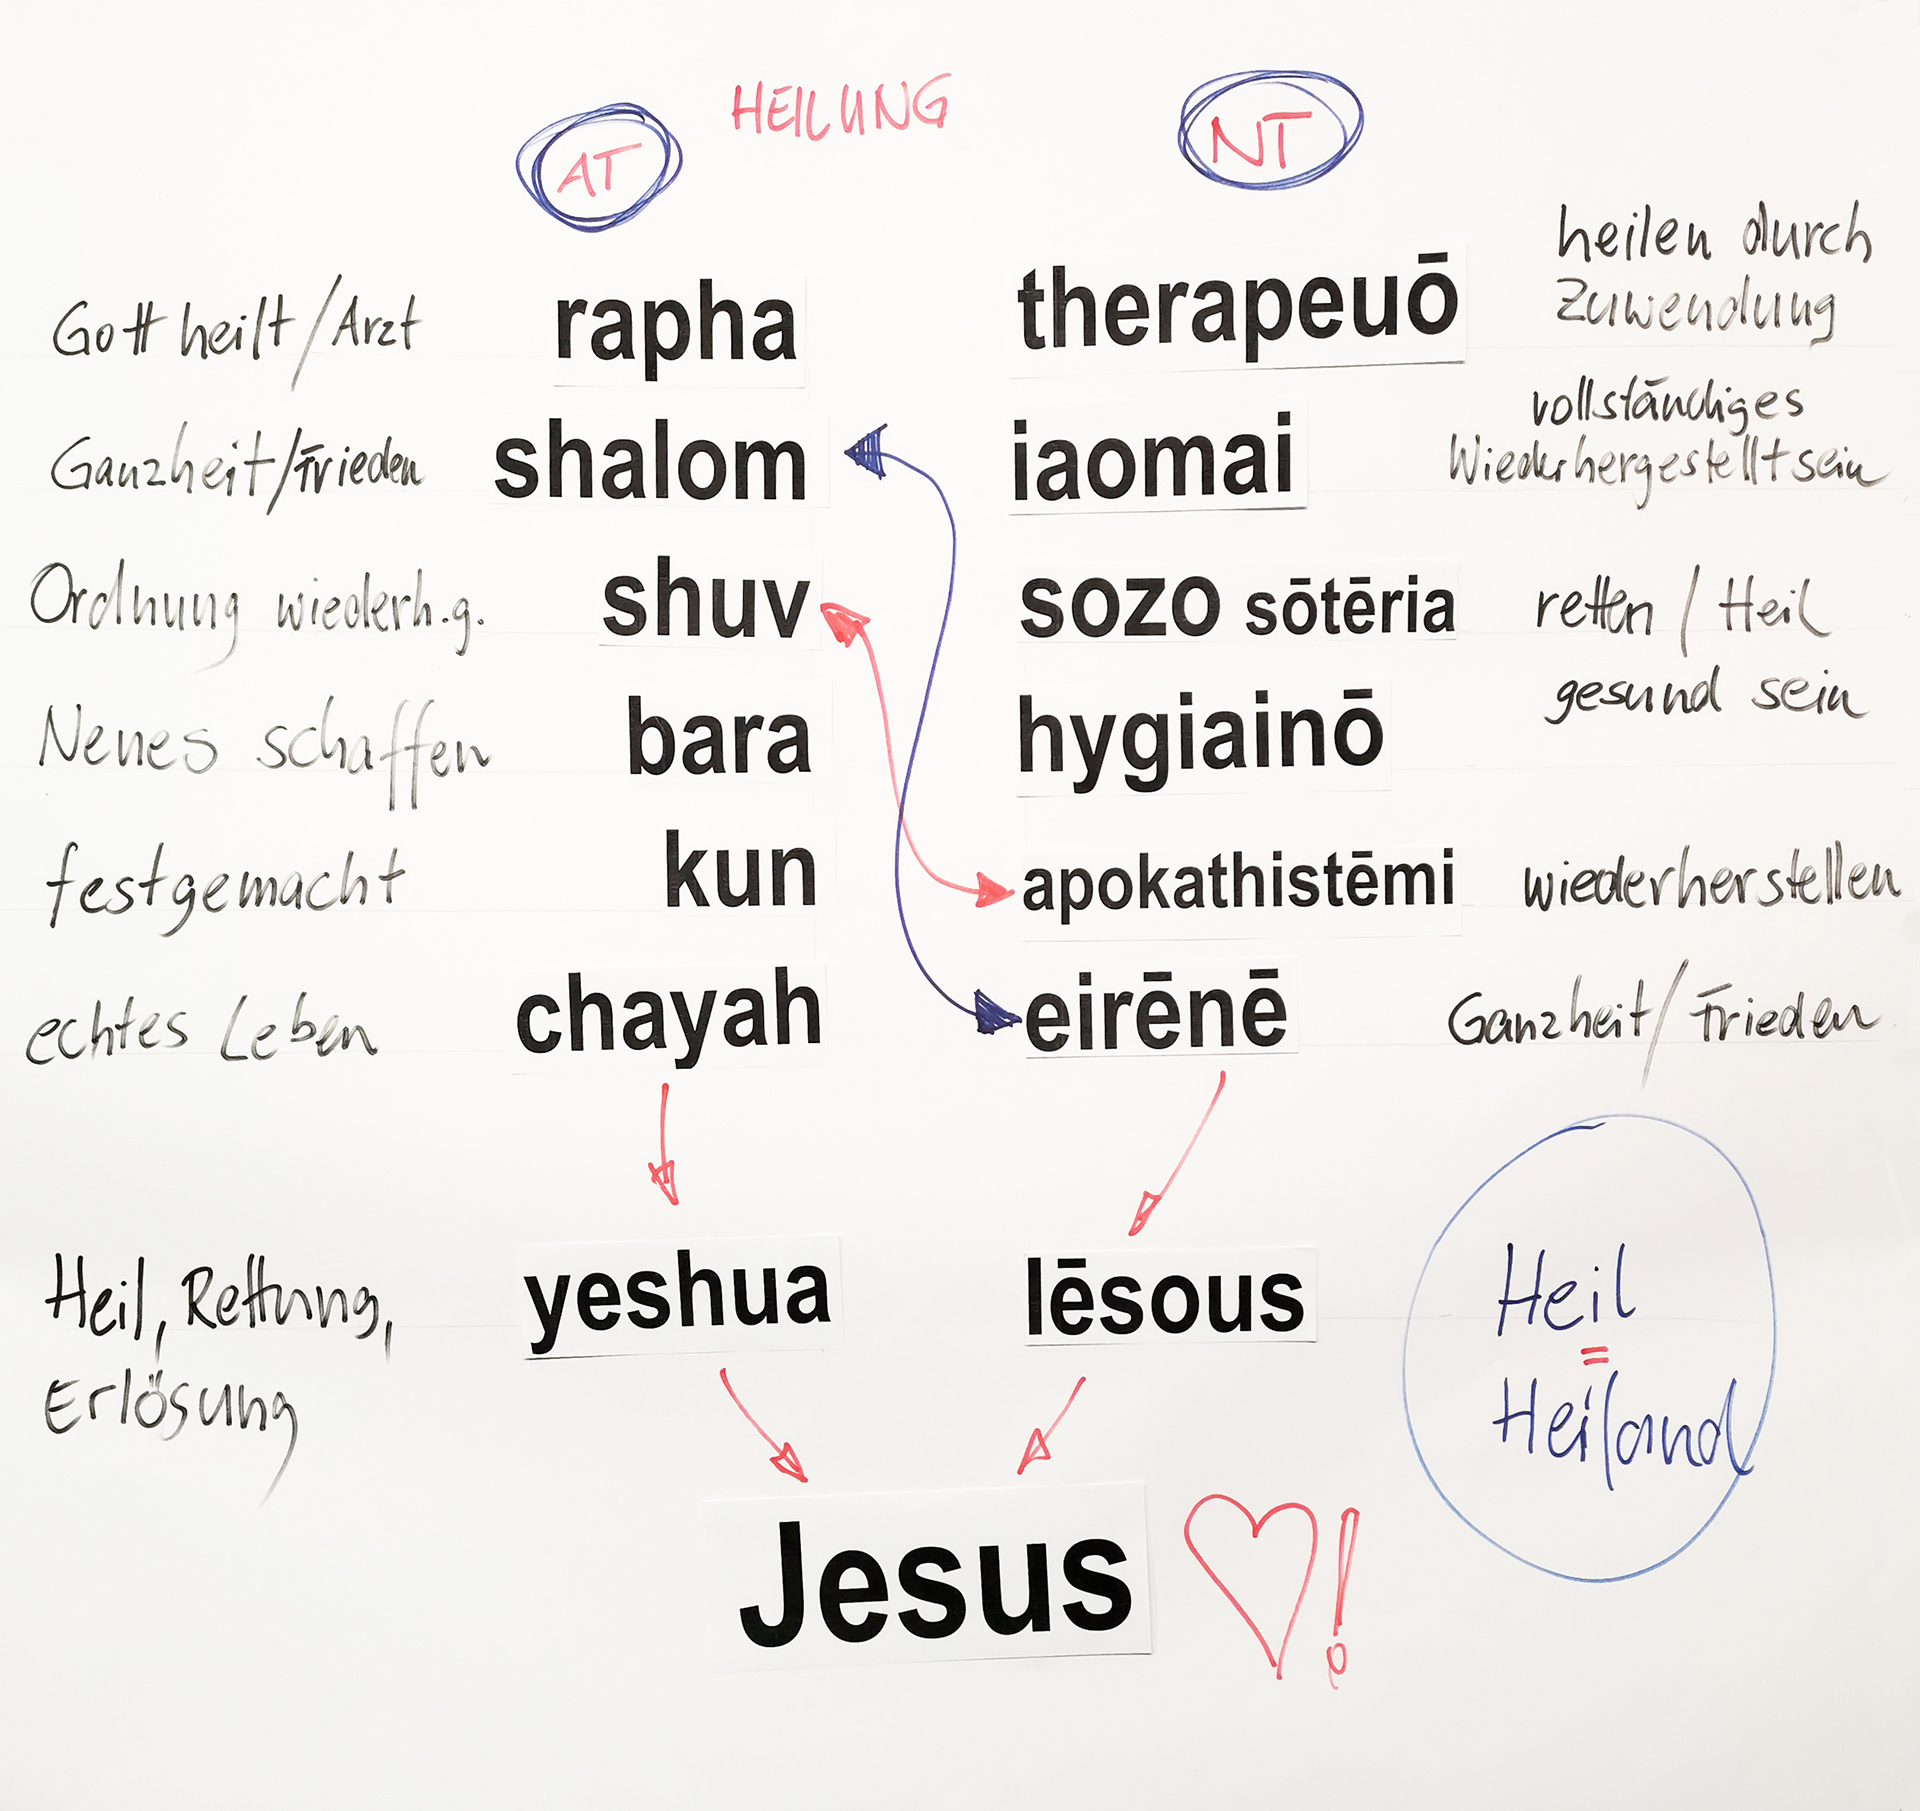 HEILUNG
AT
NT
Gott heilt / Arzt rapha therapeuō heilen durch
Zuwendung
Ganzheit / Frieden shalom iaomai vollständiges
Wiederhergestellt sein
Ordnung wiederh.g. shuv sozo sōtēria retten / Heil
Neues schaffen bara hygiainō gesund sein
festgemacht kun apokathistēmi wiederherstellen
echtes Leben chayah eirēnē Ganzheit / Frieden
Heil, Rettung, yeshua Iēsous Heil
Erlösung
=
Heiland
Jesus !